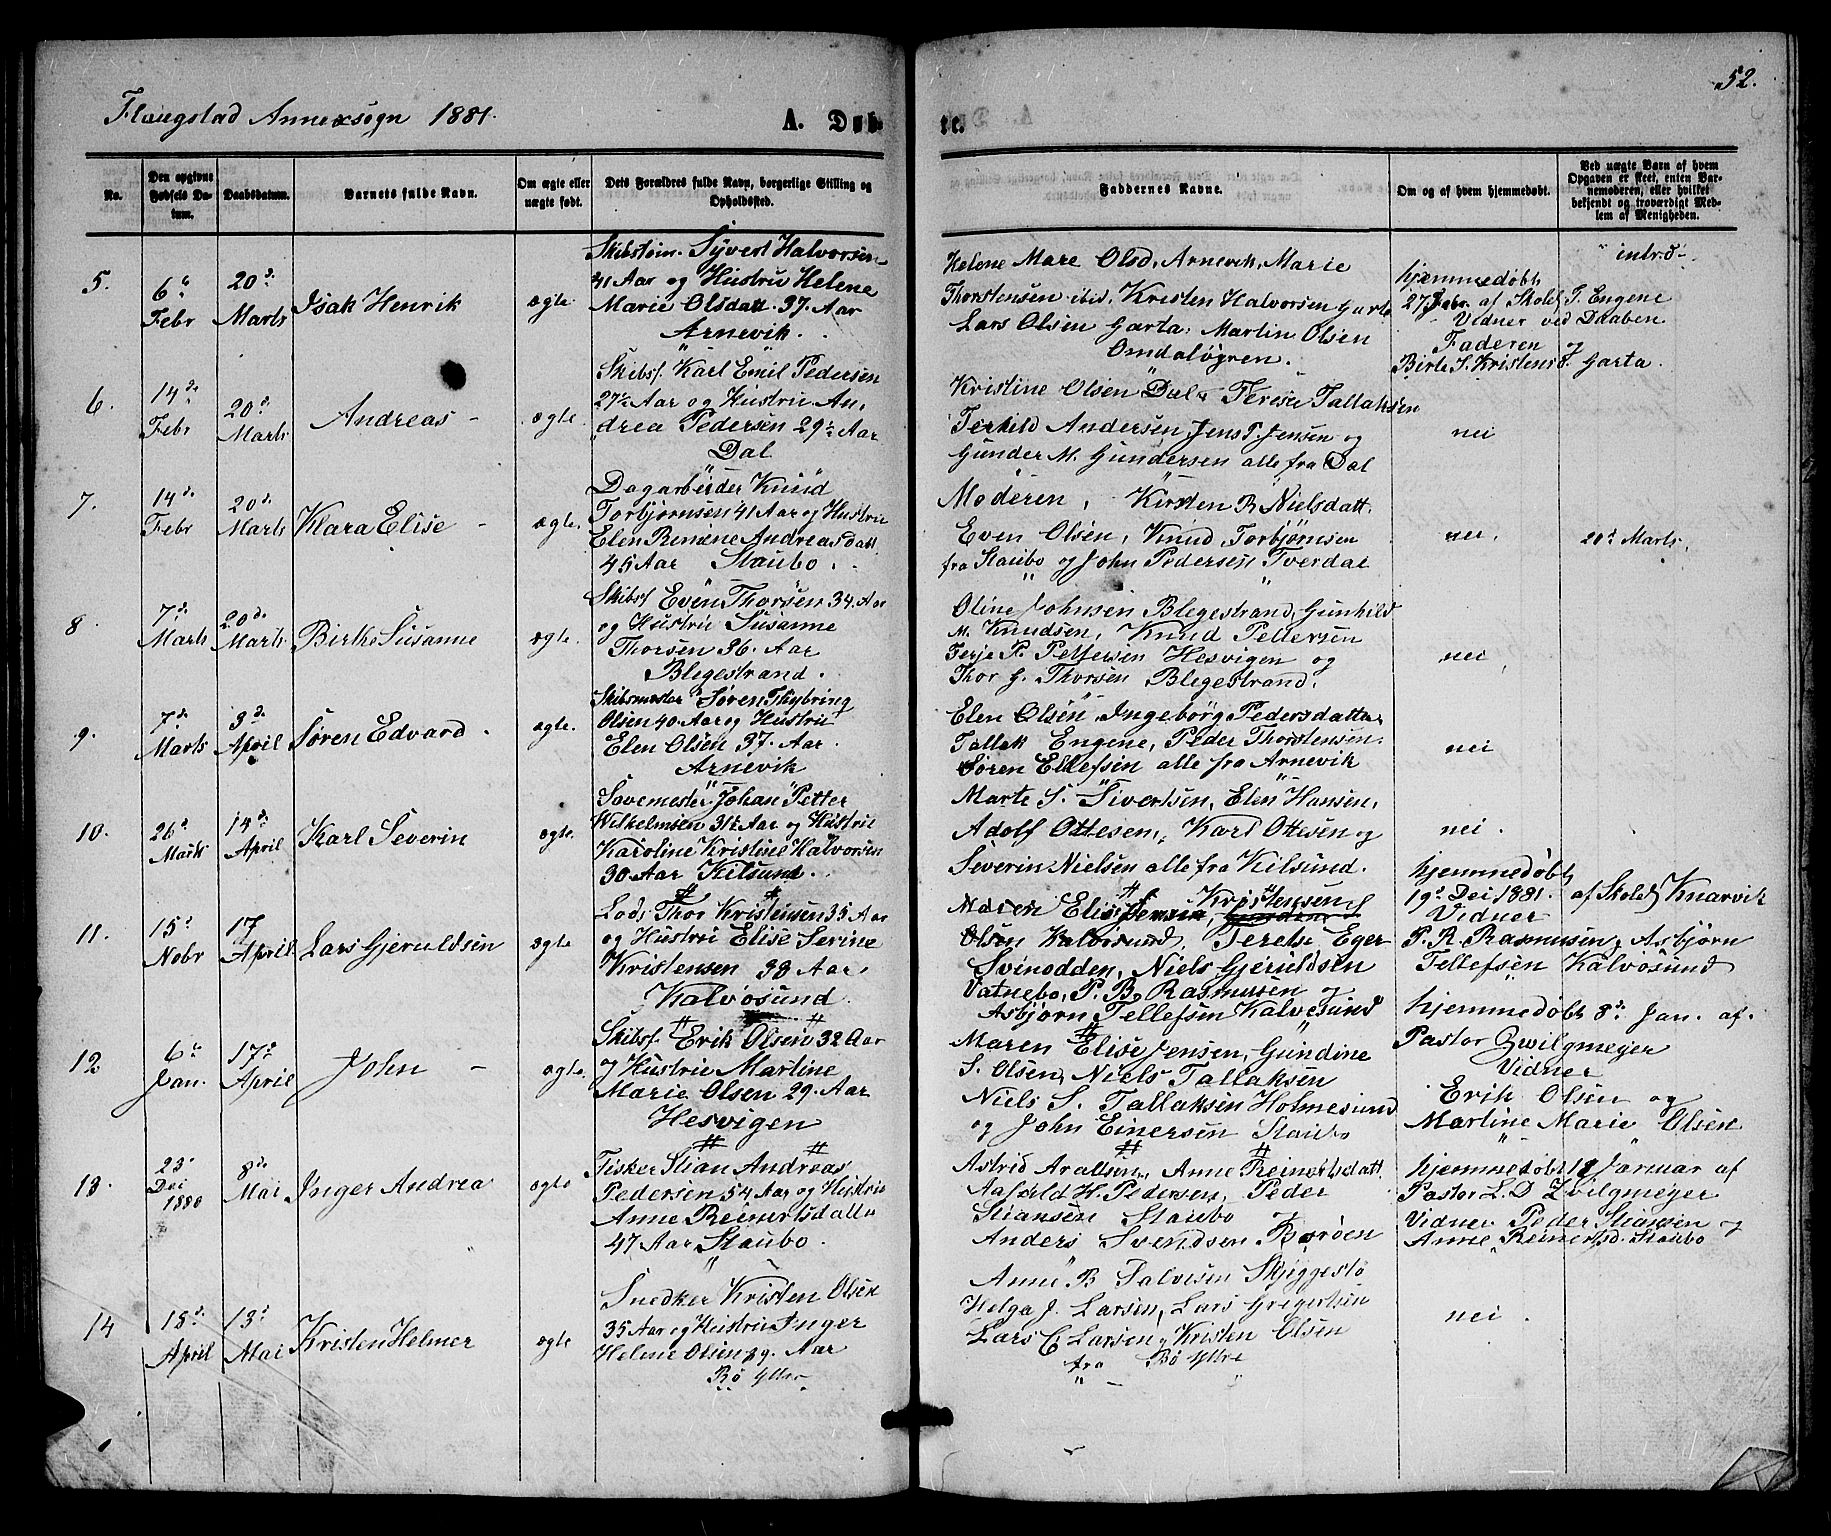 52.
Flangstad Annexsogn 1881.
A. Døbte.
No.
Den opgivne Fødsels Datum.
Daabsdatum.
Barnets fulde Navn.
Om ægte eller uægte født.
Dets Forældres fulde Navn, borgerlige Stilling og Opholdssted.
Faddernes Navne.
Om og af hvem hjemmedøbt.
Ved uægte Barn af hvem Opgaven er skeet, enten Barnemoderen, eller hvilket bekjendt og troværdigt Medlem af Menigheden.
5.
6te Febr
20de Marts
Isak Henrik
ægte
Skibstøm. Syvert Halvorsen
41 Aar og Hustru Helene
Marie Olsdatt 37. Aar
Arnevik.
Helene Mare Olsd. Arnevik, Marie
Thorstensen ibid, Kristen Halvorsen Garta
Lars Olsen Garta, Martin Olsen
Omdaløgren.
hjemmedøbt
27 Febr. af Skolel T. Engene
Vidner ved Daaben
Faderen og
Birte S. Kristensd. Garta.
introd
6.
14de Febr
20de Marts
Andreas
ægte
Skibsf. Karl Emil Pedersen
27½ Aar og Hustru An-
drea Pedersen 29½ Aar
Dal
Kristine Olsen Dal, Terese Tallaksen
Terkild Andersen, Jens P. Jensen og
Gunder M. Gundersen alle fra Dal
nei
7.
14de Febr
20de Marts
Klara Elise
ægte.
Dagarbeider Knud
Torbjørnsen 41 Aar og Hustru
Elen Remine Andreasdatt
45 Aar Staubo.
Moderen, Kirsten B. Nielsdatt.
Even Olsen, Knud Torbjørnsen
fra Staubo og John Pedersen Tverdal
nei,
20de Marts.
8
7de Marts
20de Marts
Birte Susanne
ægte.
Skibsf Even Thorsen 34. Aar
og Hustru Susanne
Thorsen 36. Aar
Blegestrand.
Oline Johnsen Blegestrand, Gunhild
M. Knudsen, Knud Pettersen
Terje P. Pettersen Hesvigen og
Thor G. Thorsen Blegestrand.
nei
9.
7de Marts
3de April
Søren Edvard.
ægte.
Skibsmester Søren Thybring
Olsen 40. Aar og Hustru
Elen Olsen 37. Aar.
Arnevik
Elen Olsen, Ingeborg Pedersdatter
Tallak Engene, Peder Thorstensen.
Søren Ellefsen alle fra Arnevik
nei
10.
26de Marts
14de April
Karl Severin
ægte.
Johan Petter
Wilhelmsen 31½ Aar og Hustru
Karoline Kristine Halvorsen
30. Aar Kilsund.
Marte S. Sivertsen, Elen Hansen,
Adolf Ottesen, Karo Ottesen og
Severin Nielsen alle fra Kilsund.
nei.
11.
15de Nobr
17 April
Lars Gjeruldsen
ægte
Lods Thor Kristensen 35 Aar
og Hustru Elise Serine
Kristensen 38 Aar,
Kalvøsund.
Maren Elise Jensen, Kristensen
Olsen Kalvøsund, Terese Eger
Svinodden, Niels Gjeruldsen
Vatnebo, P. B. Rasmusen og
Asbjørn Tellefsen Kalvøsund
hjemmedøbt
19de Dei 1881. af Skolel Knarvik
Vidner
P. R. Rasmusen, Asbjørn
Tellefsen Kalvøsund
12
6te Jan.
17de April
John
ægte.
Skibsf. Erik Olsen 32 Aar
og Hustru Martine
Marie Olsen 29. Aar
Hesvigen
Maren Elise Jensen, Gundine
S. Olsen, Niels Tallaksen
Niels S. Tallaksen Holmesund
og John Einersen Staubo
hjemmedøbt 8de Jan. af
Pastor Zwilgmeyer
Vidner
Erik Olsen og
Martine Marie Olsen
13.
23 Dei 1880
8de Mai
Inger Andrea
ægte
Fisker Stian Andreas
Pedersen 54 Aar og Hustru
Anne Reinertsdatter
47 Aar Staubo.
Astrid Aralsen, Anne Reinertsdatt
Aafald H. Pedersen, Peder
Stiansen Staubo
Anders Svendsen Borøen
hjemmedøbt Januar af
Pastor L. D Zvilgmeyer
Vidner Peder Stiansen og
Anne Reinertsd. Staubo
14
18de April
13de Mai
Kristen Helmer
ægte
Snedker Kristen Olsen
35 Aar og Hustru Inger
Helene Olsen 29. Aar
Bø Ytre
Anne B Talvesen Skjeggestø
Helga J. Larsen, Lars Gregertsen
Lars C. Larsen, Kristen Olsen
fra Bø Ytre
nei.